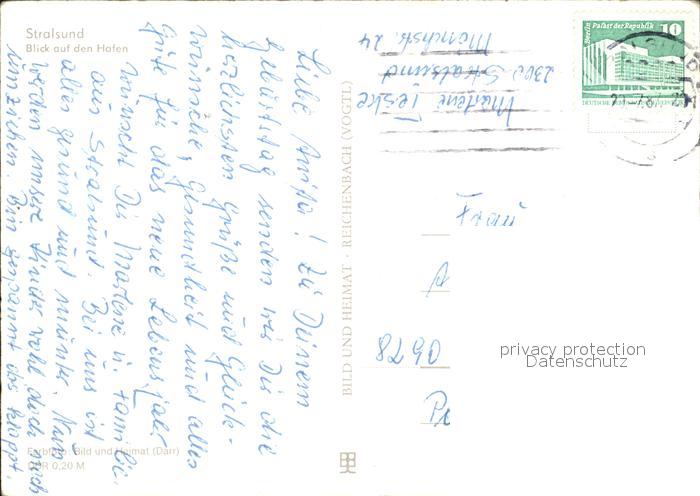 Stralsund
Blick auf den Hafen
Liebe Anita! Zu Deinem
Geburtstag senden wir Dir die
herzlichsten Grüße und Glück-
wünsche, Gesundheit und alles
Gute für das neue Lebensjahr
wünscht Dir Marlene u. Familie
aus Stralsund. Bei uns ist
alles gesund und munter. Nun
werden unsere Kinder wohl doch noch
umziehen. Bin gespannt ob's klappt.
Farbfoto: Bild und Heimat (Darr)
DDR 0,20 M
BILD UND HEIMAT · REICHENBACH (VOGTL)
Marlene Teske
2300 Stralsund
Mönchstr. 24
Berlin, Palast der Republik
10
Frau
privacy protection
Datenschutz